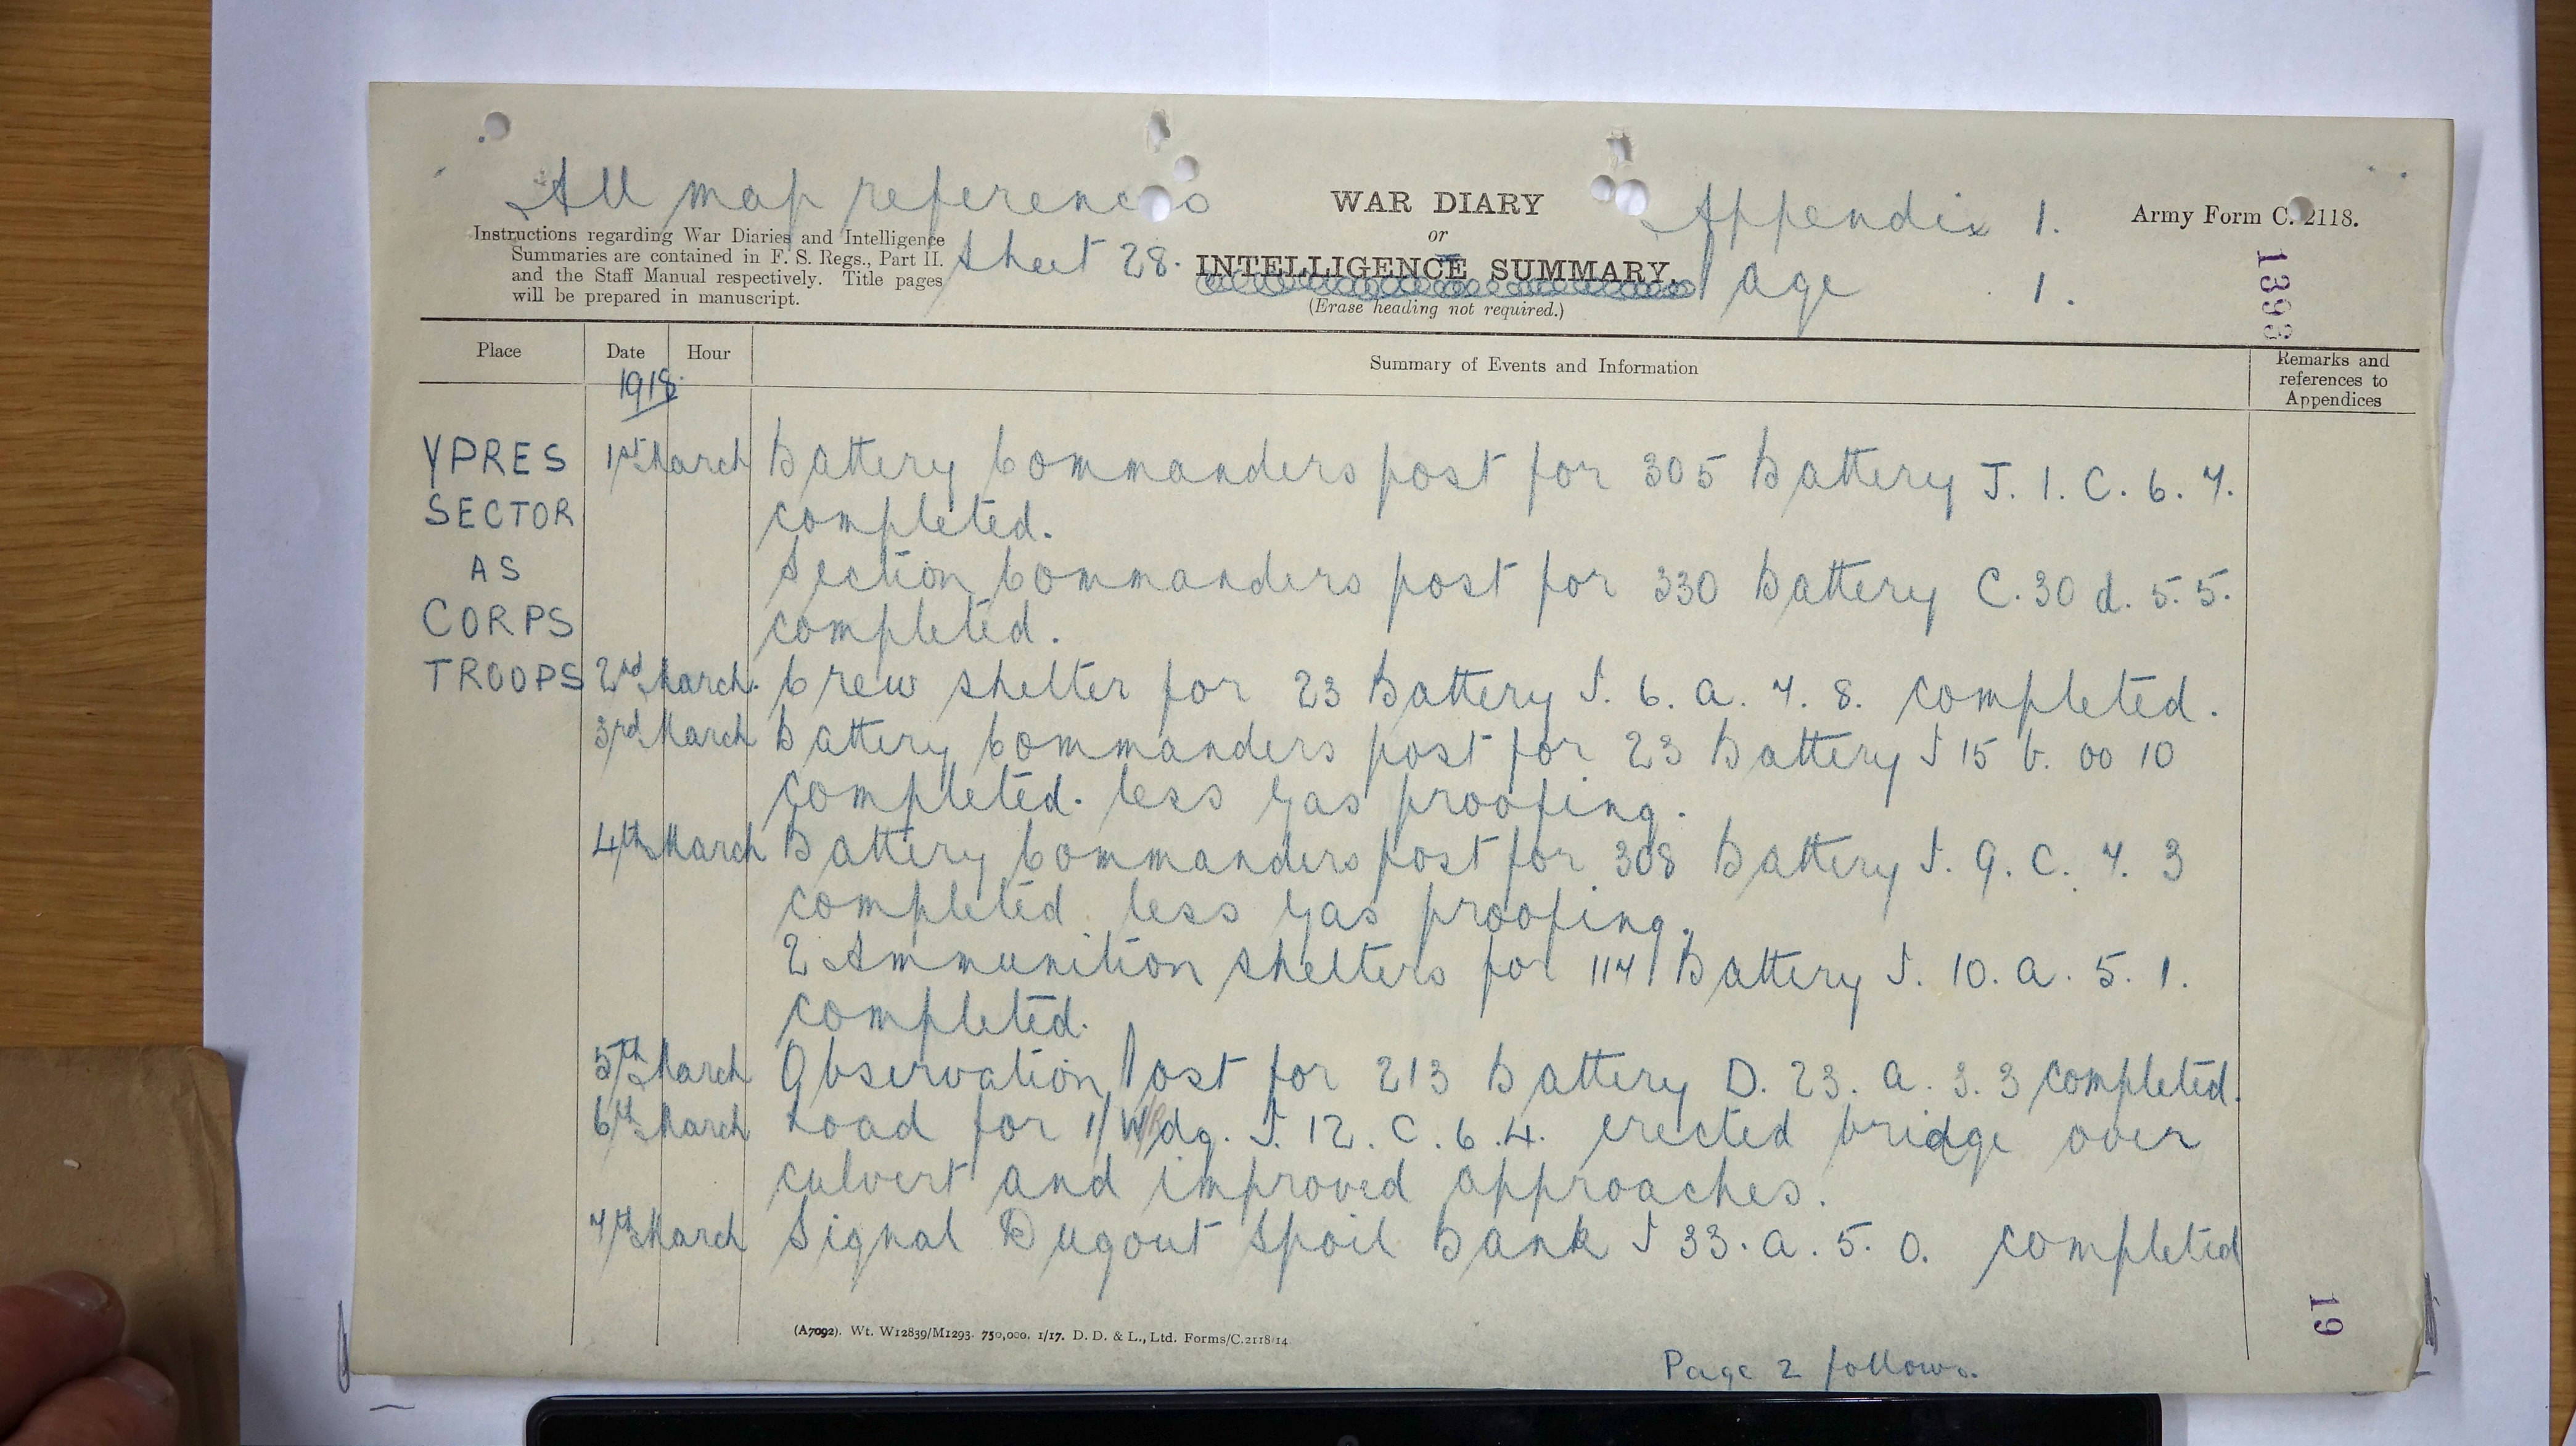 All map references
WAR DIARY
Appendix 1.
Army Form C. 2118.
Instructions regarding War Diaries and Intelligence
Summaries are contained in F. S. Regs., Part II.
and the Staff Manual respectively. Title pages
will be prepared in manuscript.
Sheet 28.
or
INTELLIGENCE SUMMARY.
Page 1.
(Erase heading not required.)
1393
Place
Date
Hour
Summary of Events and Information
Remarks and
references to
Appendices
1918.
YPRES 1st March Battery Commanders post for 305 Battery J. 1. C. 6. 7.
SECTOR completed.
AS Section Commanders post for 330 Battery C. 30 d. 5. 5.
CORPS completed.
TROOPS 2nd March. Crew shelter for 23 Battery J. 6. a. 7. 8. completed.
3rd March Battery Commanders post for 23 Battery J 15 b. 00 10
completed. less gas proofing.
4th March Battery Commanders post for 308 Battery J. 9. C. 7. 3
completed. less gas proofing.
2 Ammunition shelters for 114 Battery J. 10. a. 5. 1.
completed.
5th March Observation Post for 213 Battery D. 23. a. 3. 3 completed.
6th March Road for J. 12. C. 6. 4. erected bridge over
culvert and improved approaches.
7th March Signal Dugout Spoil Bank J 33. a. 5. 0. completed
(A7092). Wt. W12839/M1293. 750,000. 1/17. D. D. & L., Ltd. Forms/C.2118/14
19
Page 2 follows.